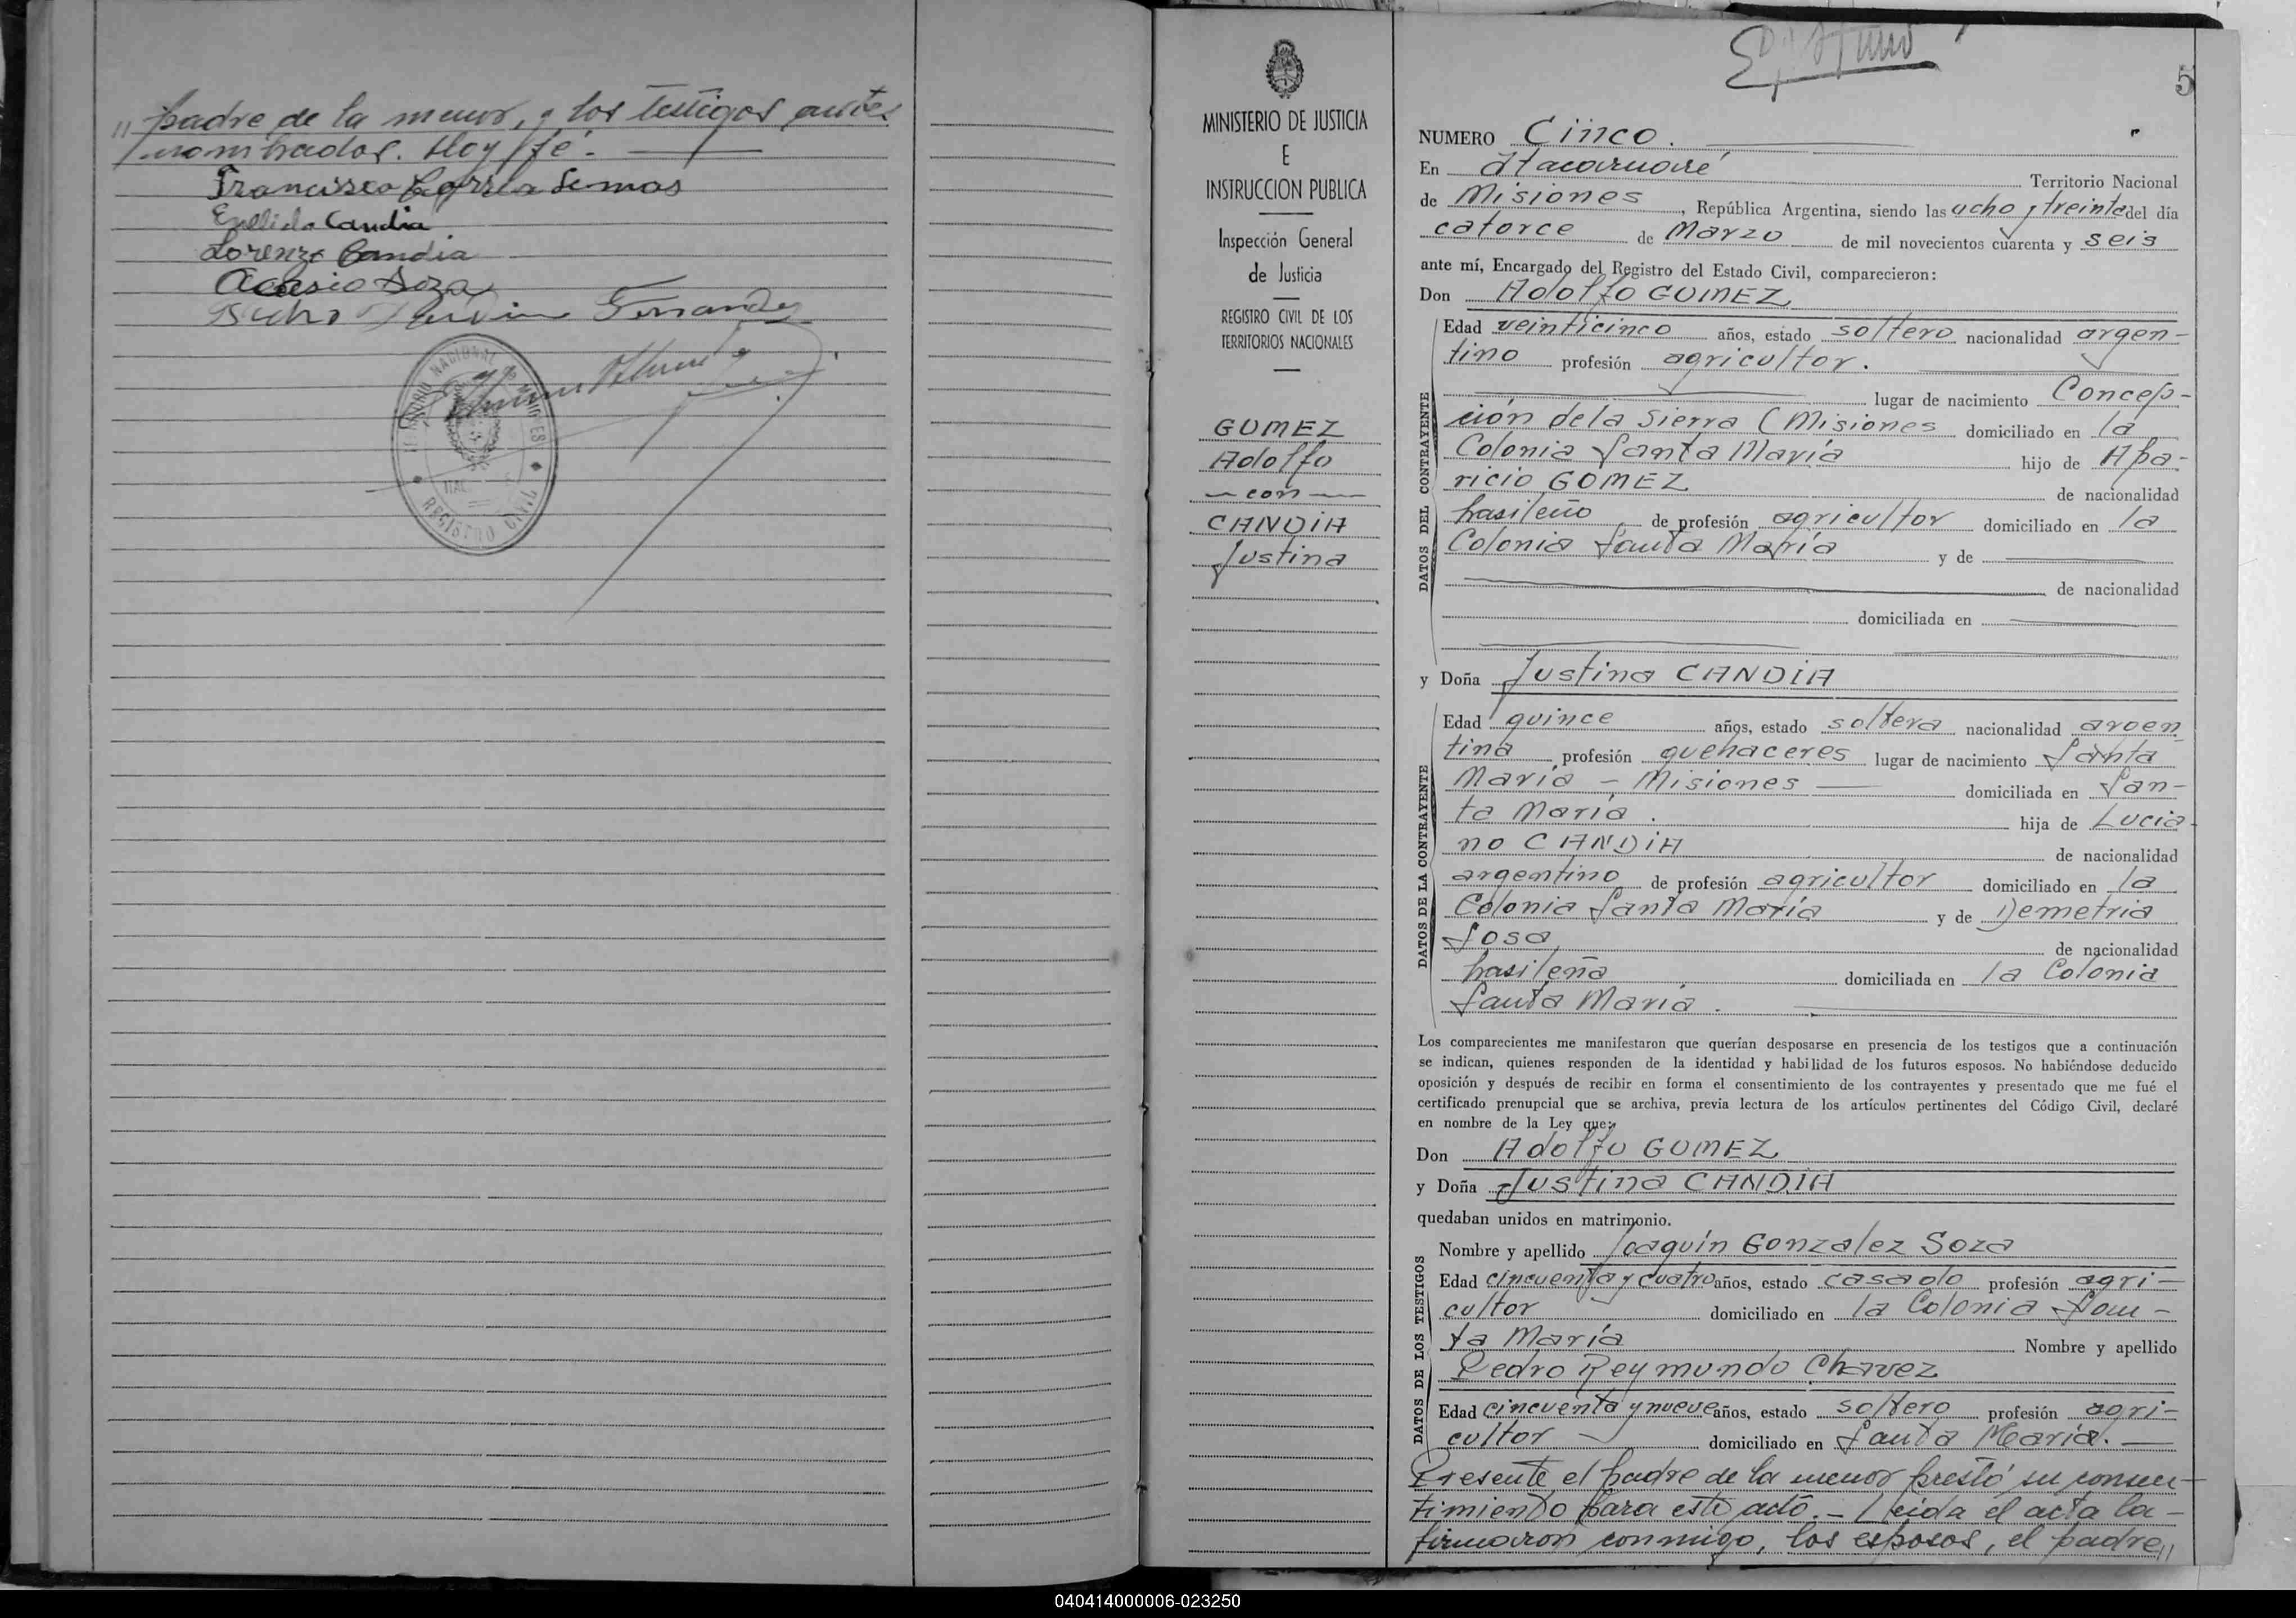 " padre de la menor, y los testigos antes
nombrados. Doy fé.
Francisco Correa Lemos
Candia
Lorenzo Candia
Acasio Soza
Fernandez
REGISTRO CIVIL
MINISTERIO DE JUSTICIA
E
INSTRUCCION PUBLICA
Inspección General
de Justicia
REGISTRO CIVIL DE LOS
TERRITORIOS NACIONALES
GOMEZ
Adolfo
— con —
CANDIA
Justina
5
NUMERO Cinco.
En Itacaruaré Territorio Nacional
de Misiones, República Argentina, siendo las ocho y treinta del día
catorce de Marzo de mil novecientos cuarenta y seis
ante mí, Encargado del Registro del Estado Civil, comparecieron:
Don Adolfo GOMEZ
DATOS DEL CONTRAYENTE
Edad veinticinco años, estado soltero nacionalidad argen-
tino profesión agricultor.
lugar de nacimiento Concep-
ción de la Sierra (Misiones domiciliado en la
Colonia Santa María hijo de Apa-
ricio GOMEZ de nacionalidad
brasileño de profesión agricultor domiciliado en la
Colonia Santa María y de
de nacionalidad
domiciliada en
y Doña Justina CANDIA
DATOS DE LA CONTRAYENTE
Edad quince años, estado soltera nacionalidad argen
tina profesión quehaceres lugar de nacimiento Santa
María - Misiones domiciliada en San-
ta María. hija de Lucia-
no CANDIA de nacionalidad
argentino de profesión agricultor domiciliado en la
Colonia Santa María y de Demetria
Sosa de nacionalidad
brasileña domiciliada en la Colonia
Santa María.
Los comparecientes me manifestaron que querían desposarse en presencia de los testigos que a continuación
se indican, quienes responden de la identidad y habilidad de los futuros esposos. No habiéndose deducido
oposición y después de recibir en forma el consentimiento de los contrayentes y presentado que me fué el
certificado prenupcial que se archiva, previa lectura de los artículos pertinentes del Código Civil, declaré
en nombre de la Ley que:
Don Adolfo GOMEZ
y Doña Justina CANDIA
quedaban unidos en matrimonio.
DATOS DE LOS TESTIGOS
Nombre y apellido Joaquín Gonzalez Soza
Edad cincuenta y cuatro años, estado casado profesión agri-
cultor domiciliado en la Colonia San-
ta María Nombre y apellido
Pedro Reymundo Chavez
Edad cincuenta y nueve años, estado soltero profesión agri-
cultor domiciliado en Santa María.
Presente el padre de la menor prestó su consen-
timiento para este acto. - Leida el acta la -
firmaron conmigo, los esposos, el padre "
040414000006-023250